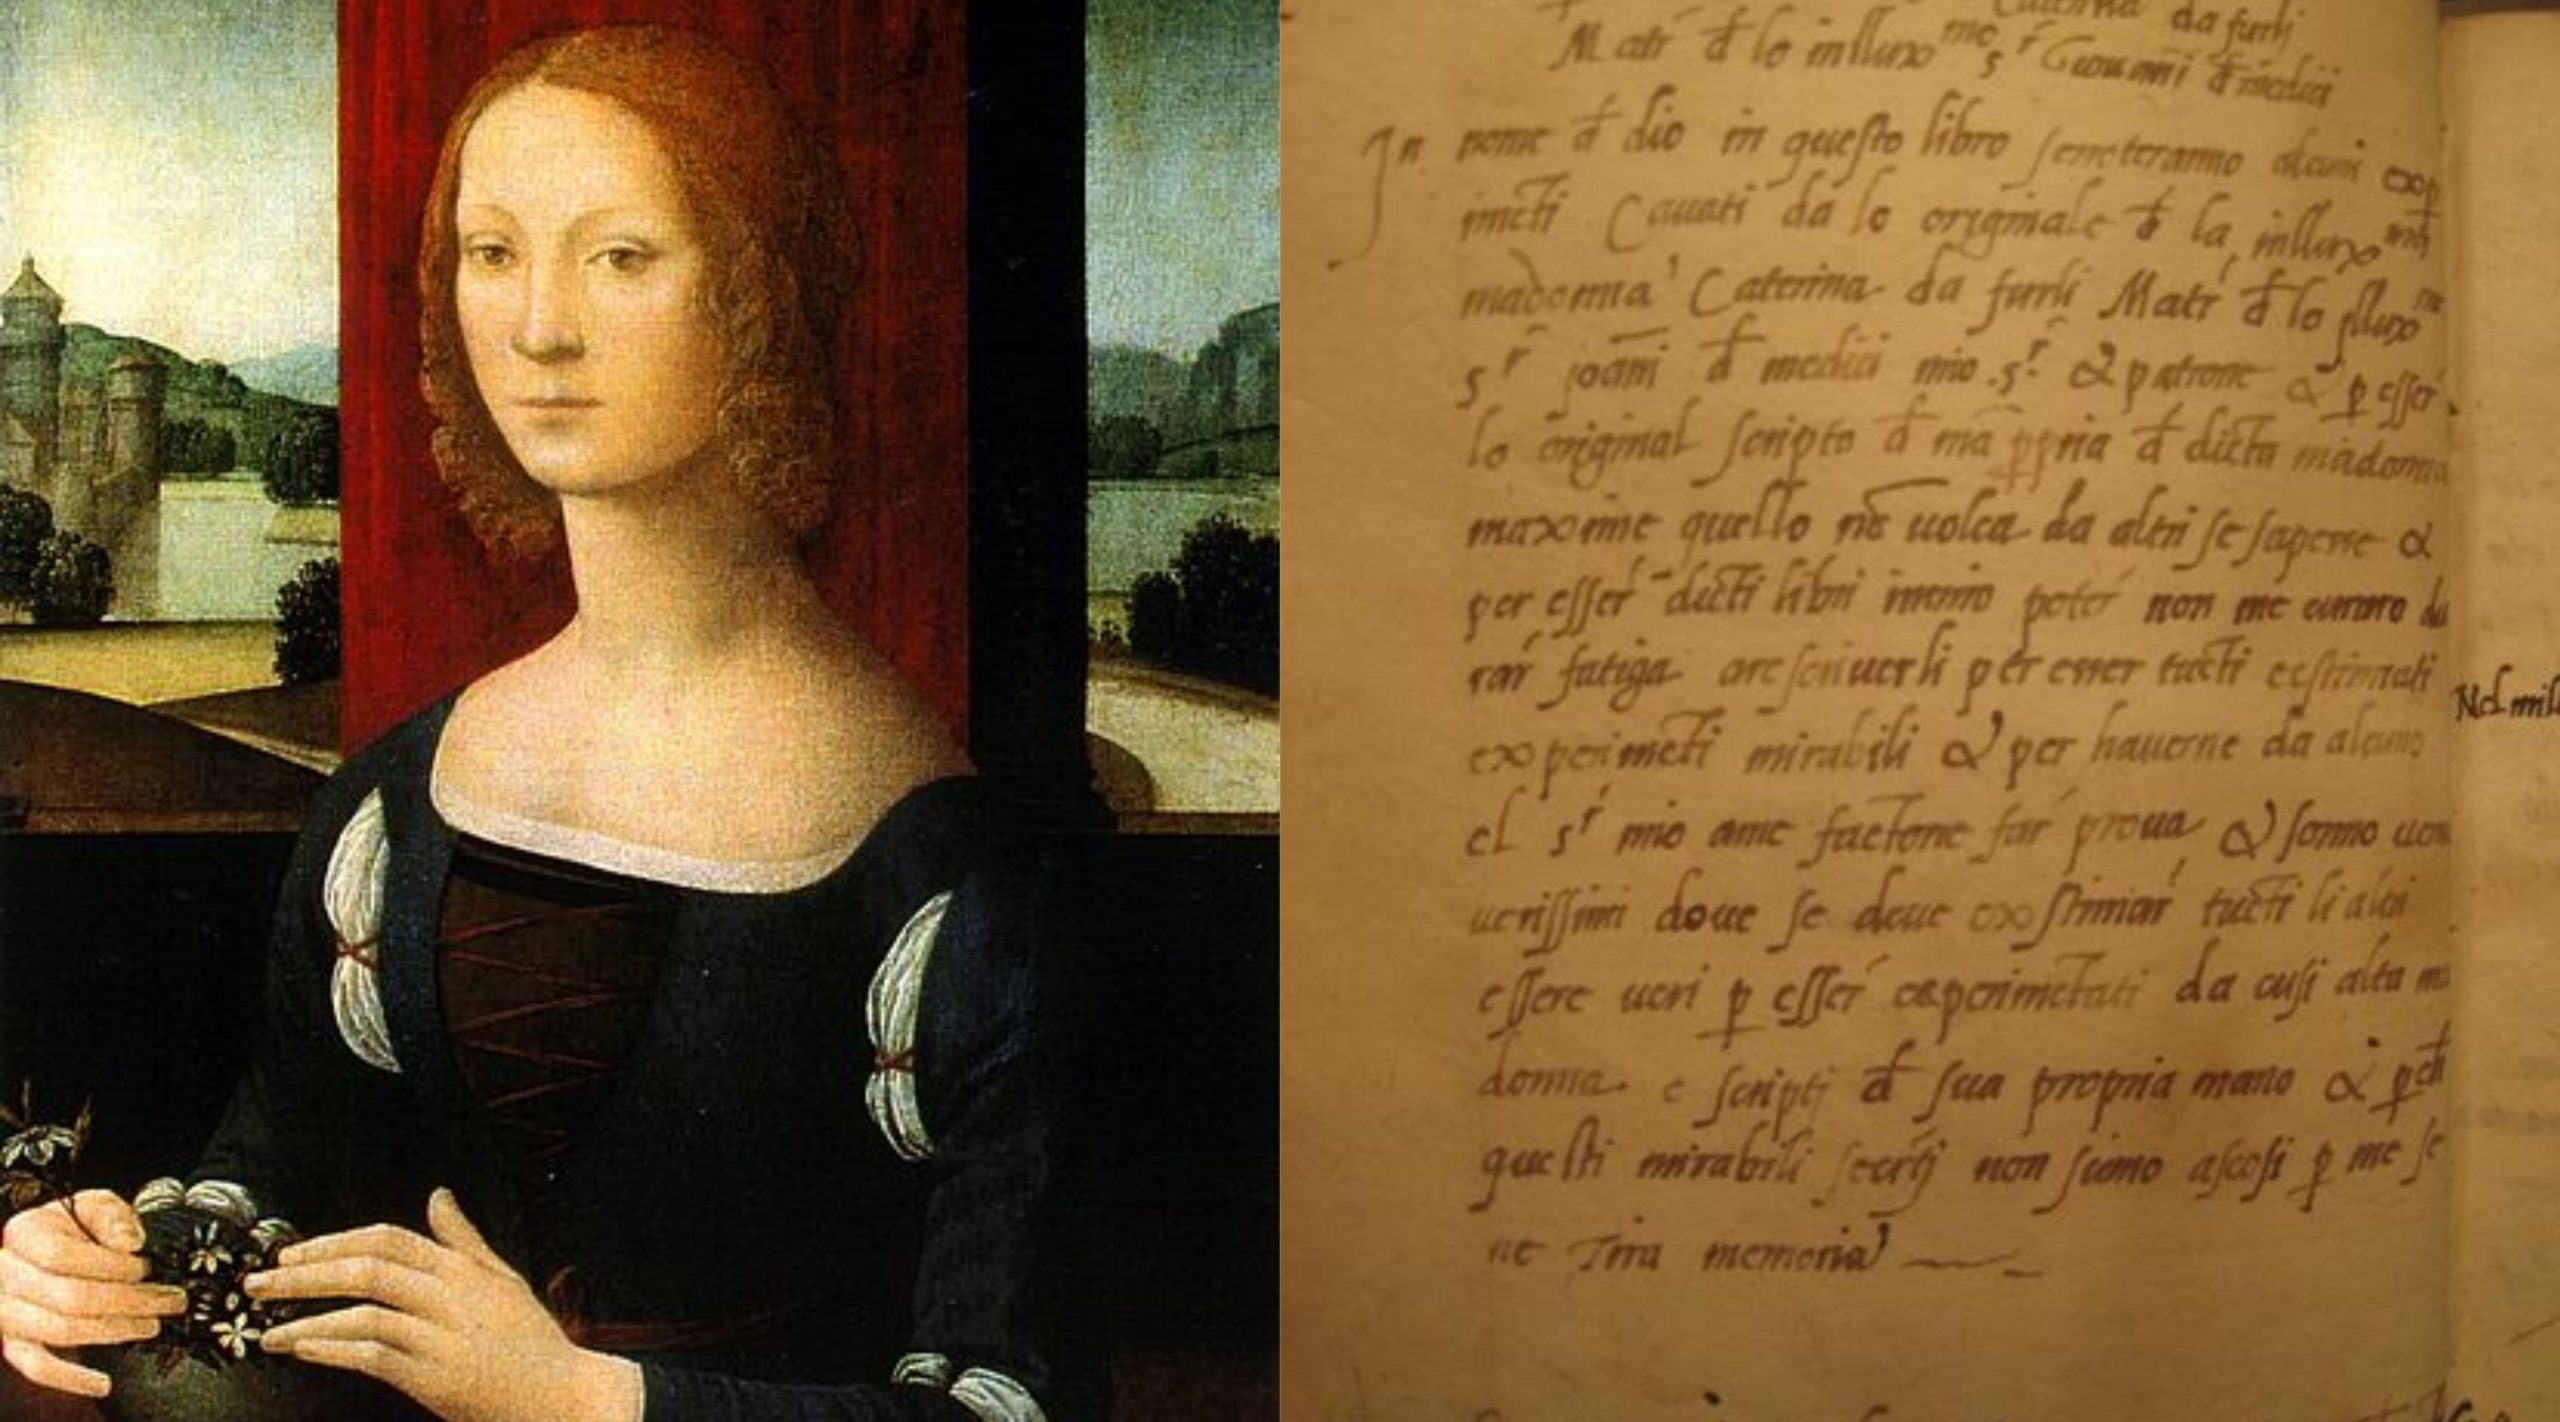 da furli
Matr̄ đ lo illux me sr Giouanni đ medici
In nome đ dio in questo libro se noteranno alcuni exp
imēti Cauati da lo originale đ la illux
madonna Caterina da furli Matr̄ đ lo Illuxmo
sr joāni đ medici mio sr & patrone & p esser
lo original scripto đ mā ppria đ dicta madonna
maxime quello nō uolea da altri se sapesse &
per esser dicti libri in mio poter non me curaro du
rar fatiga arescriuerli per esser tucti existimati
experimēti mirabili & per hauerne da alcuno
el sr mio ame factone far proua & sonno
uerissimi doue se deue existimar tucti li altri
essere ueri p esser experimētati da cusi alta ma
donna e scripti đ sua propria mano & p
questi mirabili secrēti non siano ascosi p me se
ne Tira memoria